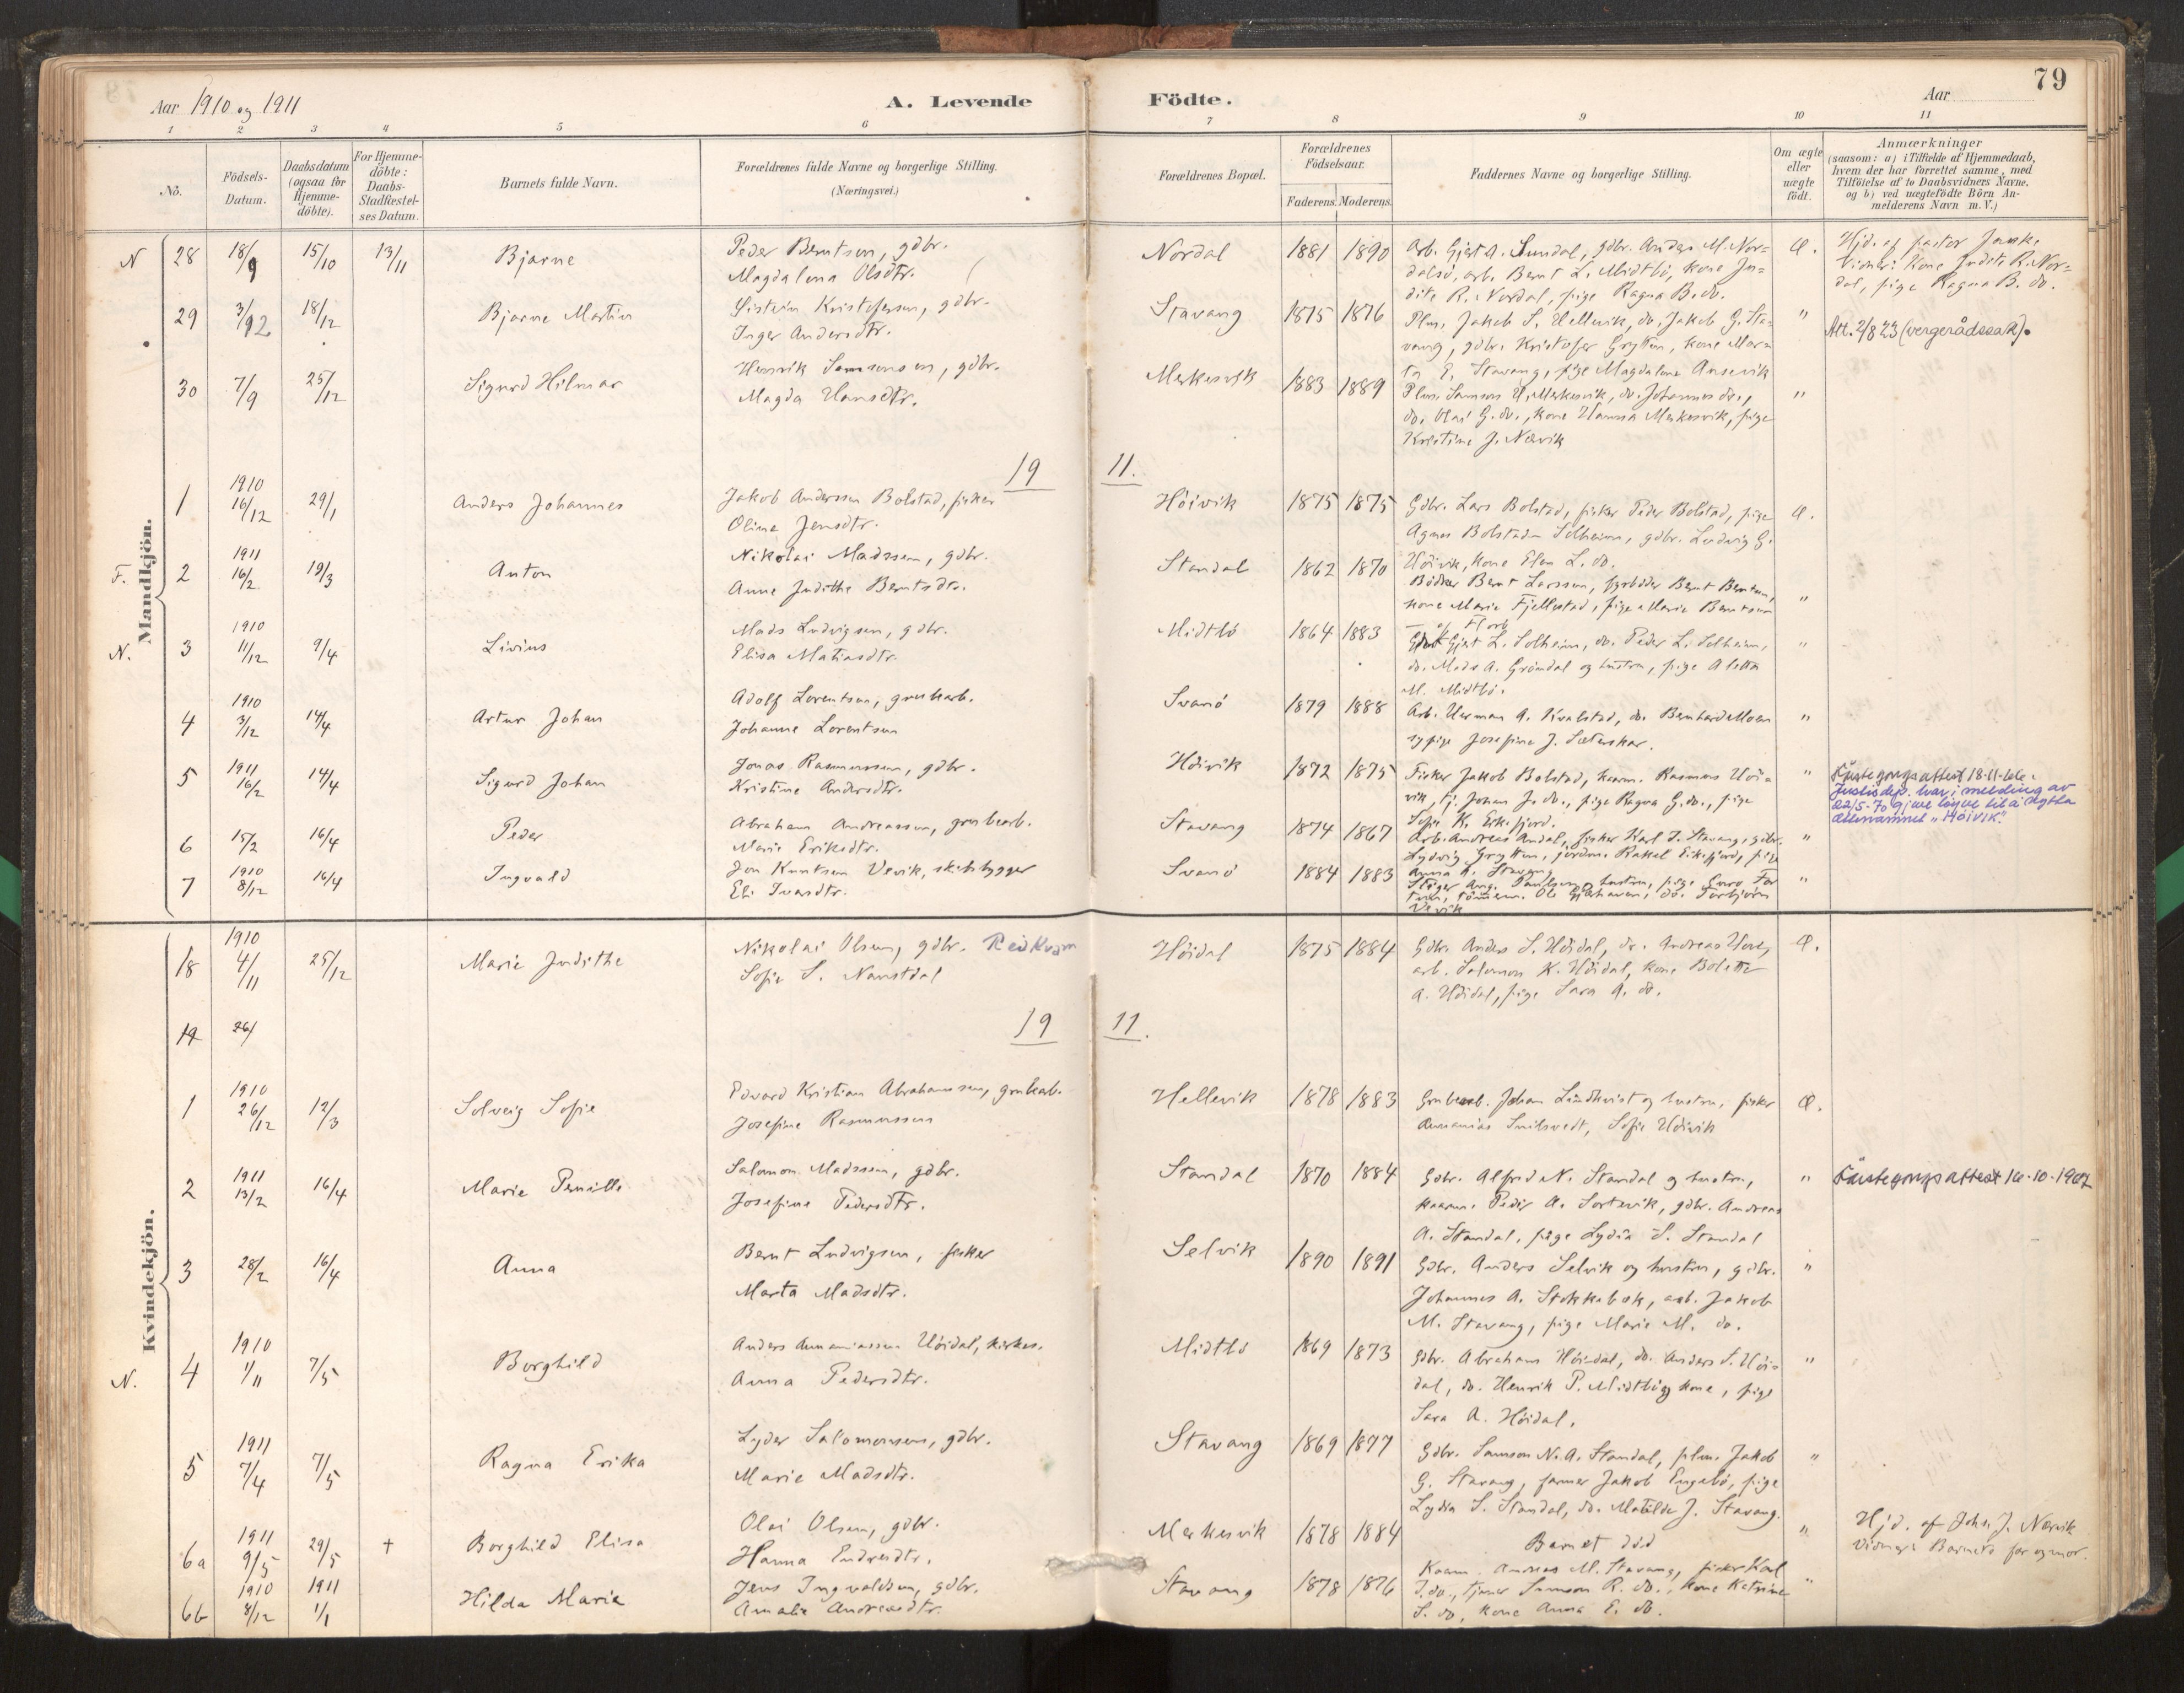 79
Aar 1910 og 1911
A. Levende Födte.
Aar
1 2 3 4 5 6 7 8 9 10 11
No.
Födsels-Datum.
Daabsdatum (ogsaa for Hjemme-döbte).
For Hjemme-döbte: Daabs-Stadfæstel-ses Datum.
Barnets fulde Navn.
Forældrenes fulde Navne og borgerlige Stilling.
(Næringsvei.)
Forældrenes Bopæl.
Forældrenes Födselsaar.
Faderens. Moderens.
Faddernes Navne og borgerlige Stilling.
Om ægte eller uægte födt.
Anmærkninger
(saasom: a) i Tilfælde af Hjemmedaab,
hvem der har forrettet samme, med
Tilföielse af to Daabsvidners Navne,
og b) ved uægtefödte Börn An-
melderens Navn m. V.)
Mandkjön.
N 28 18/9 15/10 13/11 Bjarne
Peder Berntsen, gdbr.
Magdalena Olsdtr.
Nordal 1881 1890
Arb. Gjert A. Sundal, gdbr. Anders M. Nor=
dalsö, arb. Bernt L. Midtbö, kone Ju=
dite R. Nordal, pige Ragna B. do.
Æ.
Hjd. af pastor
Vidner: Kone Judite R. Nor=
dal, pige Ragna B. do.
29 3/12 18/12 Bjarne Martin
Sistein Kristofersen, gdbr.
Inger Andersdtr.
Stavang 1875 1876
Plm. Jakob S. Hellevik, do. Jakob G. Sta=
vang, gdbr. Kristofer Grytten, kone Mar=
ta E. Stavang, pige Magdalene Ansevik
"
Att. 2/8 23 (vergerådssak).
30 7/9 25/12 Sigurd Hilmar
Henrik Samsonsen, gdbr.
Magda Hansdtr.
Merkesvik 1883 1889
Plm. Samson H. Merkesvik, do. Johannes do.,
do. Olai G. do., kone Hanna Merkesvik, pige
Kristine J. Nærvik
"
19 11.
1 1910 16/12 29/1 Anders Johannes
Jakob Anderssen Bolstad, fisker
Oline Jensdtr.
Höivik 1875 1875
Gdbr. Lars Bolstad, fisker Peder Bolstad, pige
Agnes Bolstad Solheim, gdbr. Ludvig G.
Höivik, kone Elen L. do.
Æ.
F. 2 1911 16/2 19/3 Anton
Nikolai Madssen, gdbr.
Anne Judithe Berntsdtr.
Standal 1862 1870
Bödker Bernt Larssen, fyrböder Bernt Berntsen,
kone Marie Fjellestad, pige Marie Berntsen
"
N. 3 1910 11/12 9/4 Livius
Mads Ludvigsen, gdbr.
Elisa Matiasdtr.
Midtbö 1864 1883
Gjert L. Solheim, do. Peder L. Solheim,
do. Mads A. Gröndal og hustru, pige Aletta
M. Midtbö.
"
4 1910 3/12 14/4 Artur Johan
Adolf Lorentsen, grubearb.
Johanne Lorentsen
Svanö 1879 1888
Arb. Herman A. Kvalstad, do. Bernhard Moen
sypige Josefine J. Sæterskar.
"
5 1911 16/2 14/4 Sigurd Johan
Jonas Rasmussen, gdbr.
Kristine Andersdtr.
Höivik 1872 1875
Fisker Jakob Bolstad, kaarm. Rasmus Höi=
vik, tj. Johan J. do., pige Ragna G. do., pige
Sofie K. Eikefjord.
"
Justisdep. har i melding av
22/5-70 gjeve løyve til å nytta
ættenamnet "Höivik".
6 15/2 16/4 Peder
Abraham Andreassen, grubearb.
Marie Eriksdtr.
Stavang 1874 1867
Arb. Andreas Andal, fisker Karl J. Stavang, gdbr.
Lydvig Grytten, jordm. Rakel Eikefjord, pige
Anna A. Stavang
"
7 1910 8/12 16/4 Ingvald
Jon Knutsen Vevik, skibsbygger
Eli Ivarsdtr.
Svanö 1884 1883
Stiger Aug. Paulsen og hustru, pige Guro For
tun, tömmerm. Ole Hjærhaven, do. Torbjörn
Vevik
"
Kvindekjön.
18 1910 4/11 25/12 Marie Judithe
Nikolai Olsen, gdbr. Reidkvam
Sofie S. Naustdal
Höidal 1875 1884
Gdbr. Anders S. Höidal, do. Andreas Hove,
arb. Salomon K. Höidal, kone Bolette
A. Höidal, pige Sara A. do.
Æ.
19 26/
19 11.
1 1910 26/12 12/3 Solveig Sofie
Edvard Kristian Abrahamsen, grubearb.
Josefine Rasmussen
Hellevik 1878 1883
Grubearb. Johan Lindkvist og hustru, fisker
Annanias Smilsvedt, Sofie Höivik
Æ.
2 1911 13/2 16/4 Marie Pernille
Salomon Madssen, gdbr.
Josefine Pedersdtr.
Standal 1870 1884
Gdbr. Alfred N. Standal og hustru,
kaarm. Peder A. Sortevik, gdbr. Andreas
A. Standal, pige Lydia S. Standal
"
3 28/2 16/4 Anna
Bernt Ludvigsen, fisker
Marta Madsdtr.
Selvik 1890 1891
Gdbr. Anders Selvik og hustru, gdbr.
Johannes A. Stokkebæk, arb. Jakob
M. Stavang, pige Marie M. do.
"
N. 4 1910 1/11 7/5 Borghild
Anders Annaniassen Höidal, kirkes.
Anna Pedersdtr.
Midtbö 1869 1873
Gdbr. Abraham Höidal, do. Anders S. Höi=
dal, do. Henrik P. Midtbö og kone, pige
Sara A. Höidal.
"
5 1911 7/4 7/5 Ragna Erika
Lyder Salomonsen, gdbr.
Marie Madsdtr.
Stavang 1869 1877
Gdbr. Samson N. A. Standal, plm. Jakob
G. Stavang, farmer Jakob Engebö, pige
Lydia S. Standal, do. Matilde J. Stavang.
"
6a 1911 9/5 29/5 + Borghild Elisa
Olai Olsen, gdbr.
Hanna Endresdtr.
Merkesvik 1878 1884
Barnet död
"
Hjd. af Johs. J. Nærvik
Vidner: Barnets far og mor.
6b 1910 8/12 1911 1/1 Hilda Marie
Jens Ingvaldsen, gdbr.
Amalie Andreasdtr.
Stavang 1878 1876
Kaarm. Andreas M. Stavang, fisker Karl
J. do., tjener Samson R. do., kone Katrine
S. do, kone Anna E. do.
"